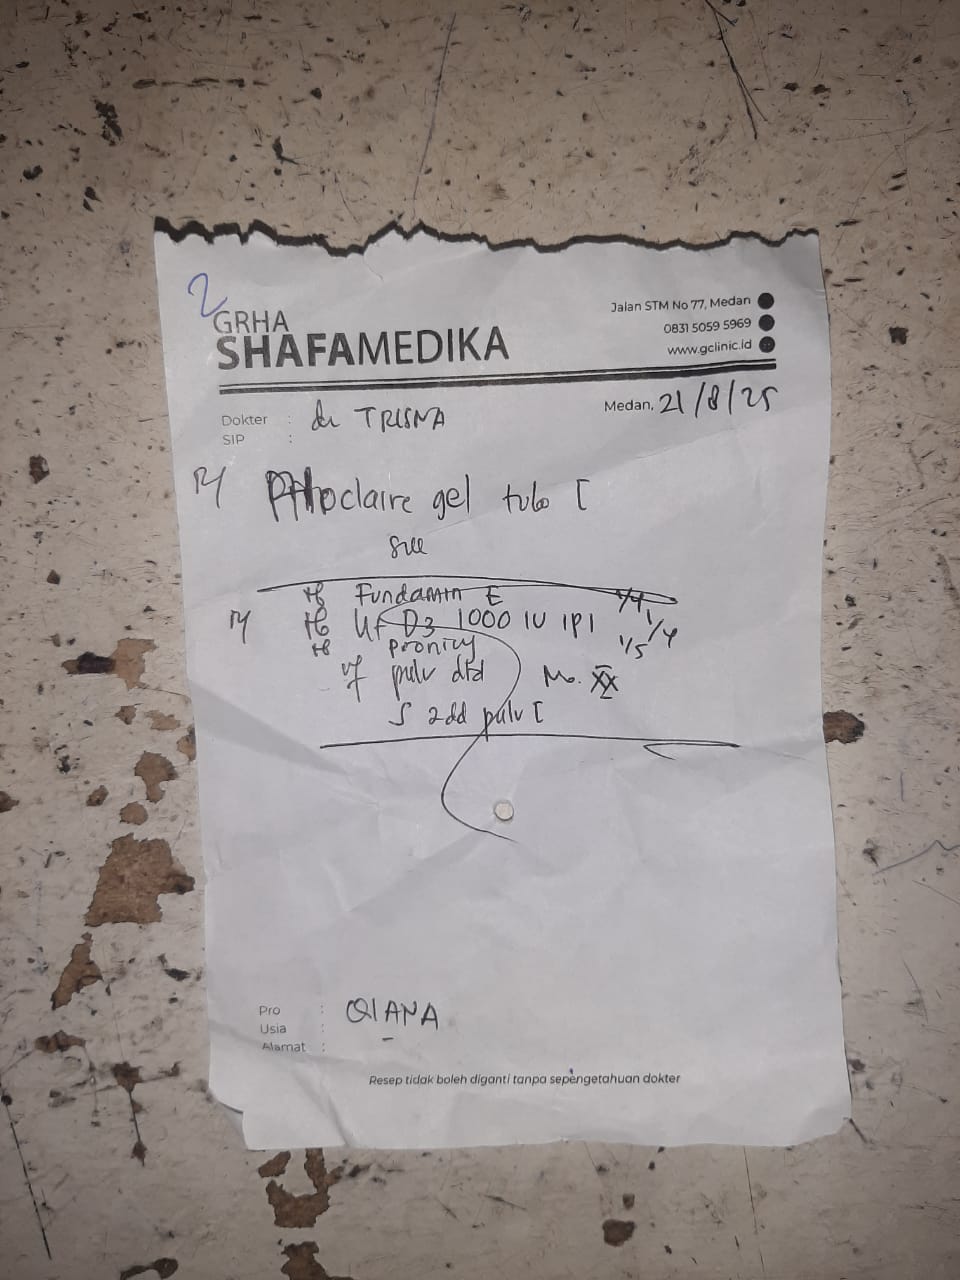 2
GRHA
SHAFAMEDIKA
Jalan STM No 77, Medan
0831 5059 5969
www.gclinic.id
Dokter : dr TRISNA
SIP :
Medan, 21/8/25
R/ claire gel tube I
sue
R/ Fundamin E 1/4
D3 1000 IU 1/4
pronicy 1/5
pulv dtd No. XX
S 2dd pulv I
Pro : QIANA
Usia :
Alamat :
Resep tidak boleh diganti tanpa sepengetahuan dokter